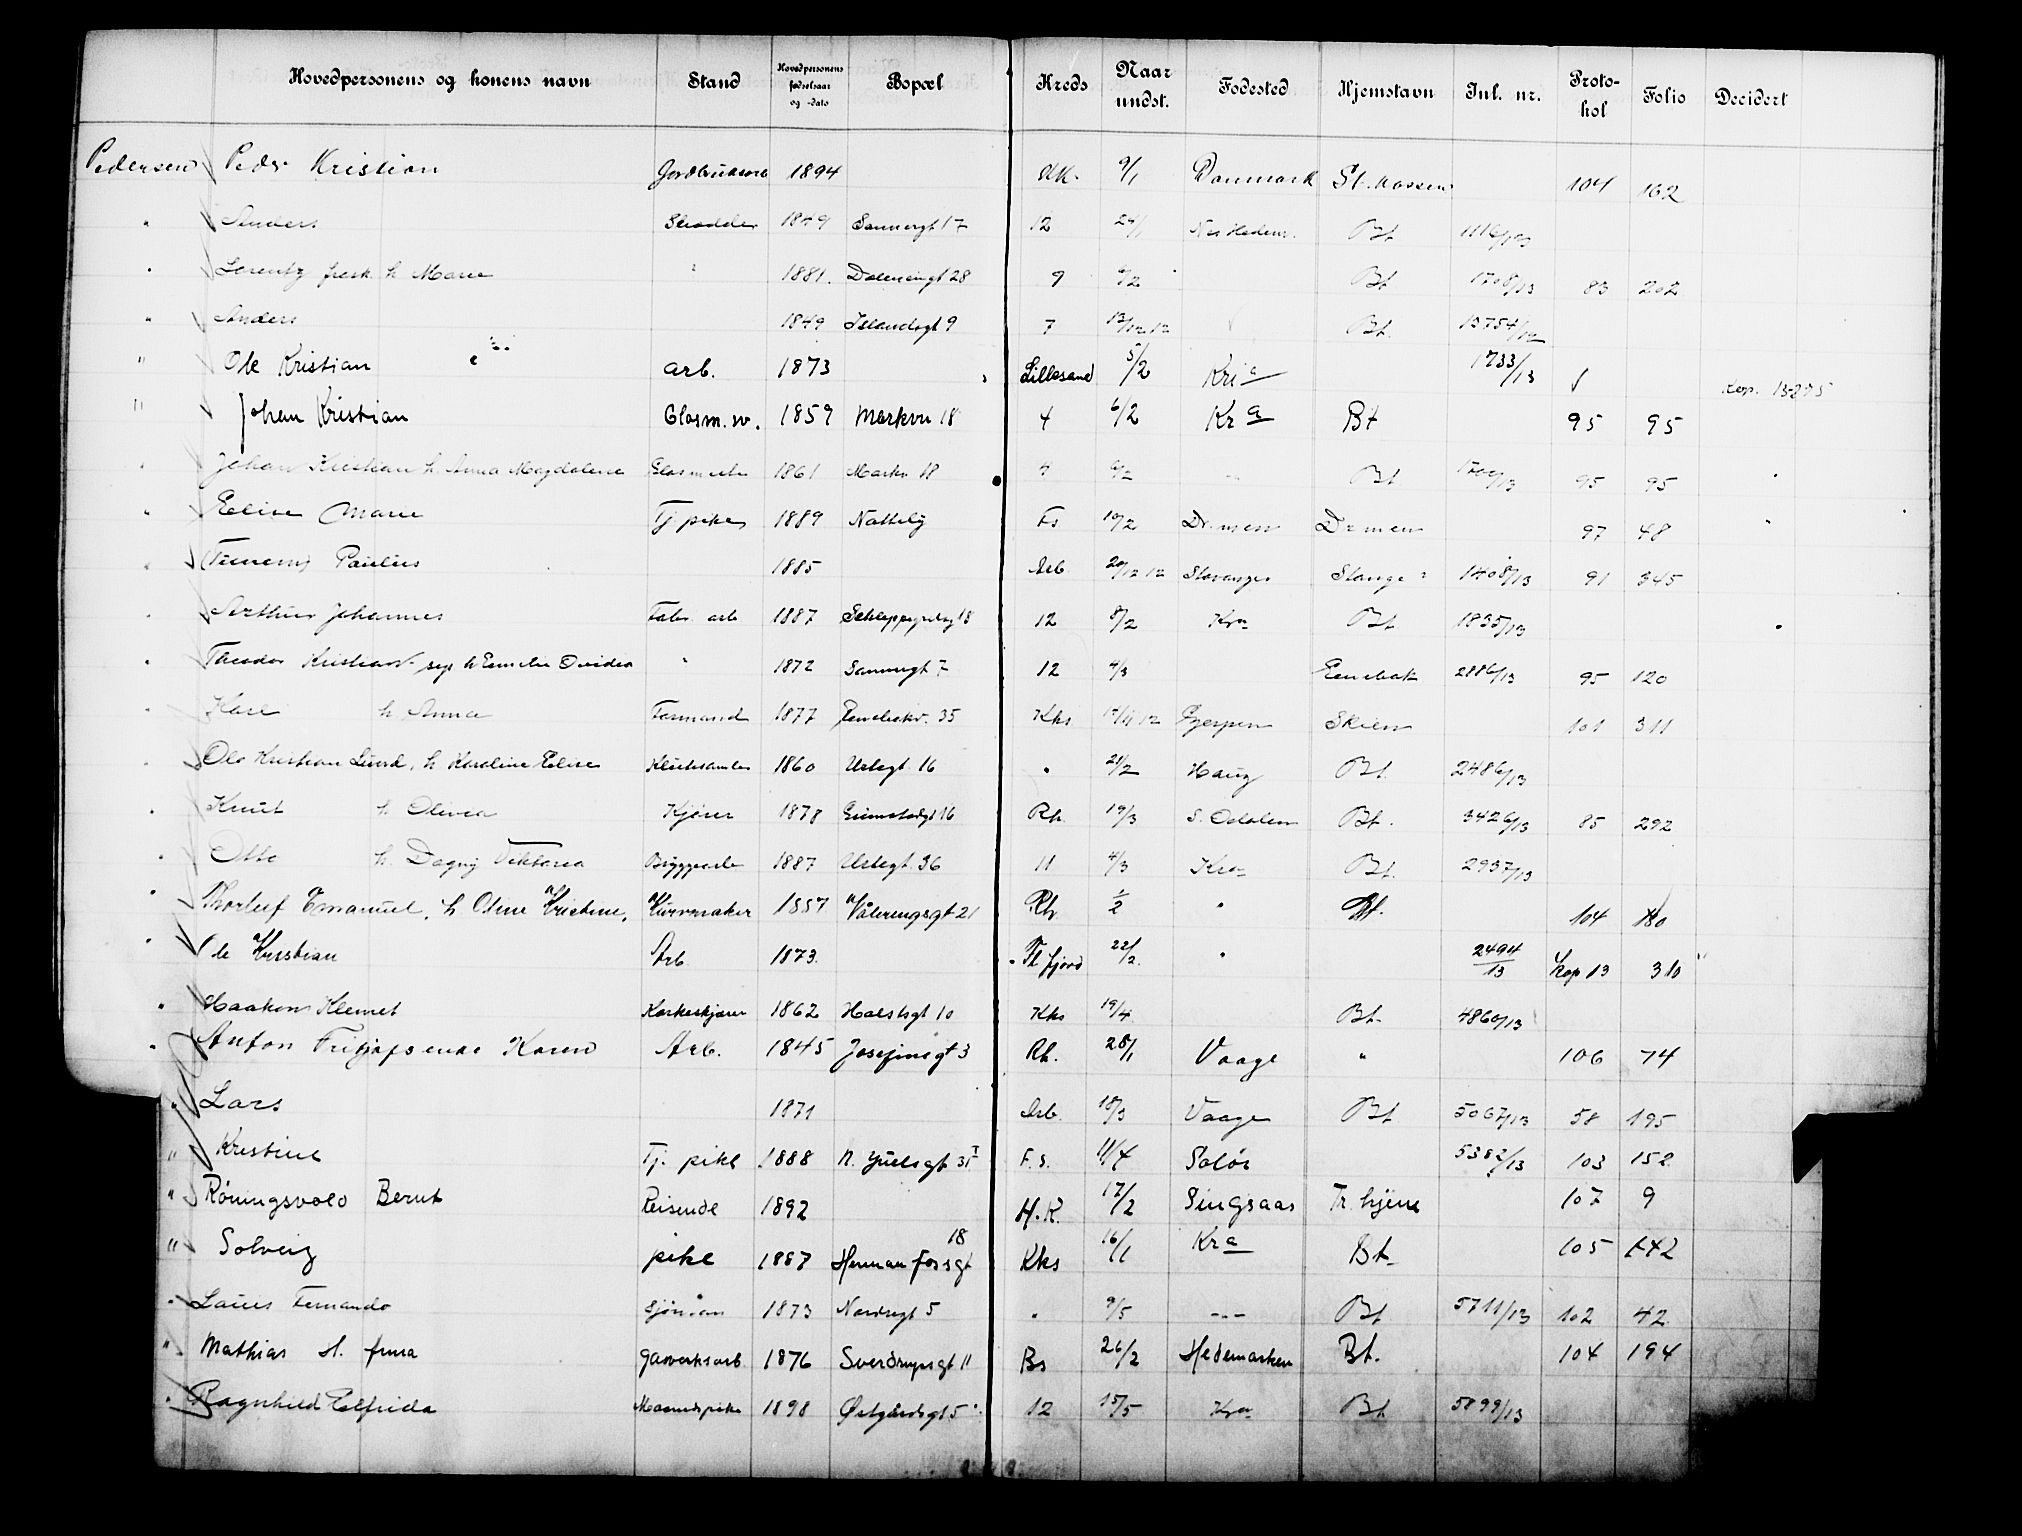 Hovedpersonens og konens navn Stand Hovedpersonens fødselsaar og -dato Bopæl Kreds Naar undst. Fødested Hjemstavn Jnl. nr. Proto-kol Folio Decidert
Pedersen Peder Kristian 1894 9/1 Danmark 104 162
" Anders 1849 Sannergt 17 12 24/1 Nes Hedem. Bt
" Lorentz h Marie " 1881. 28 9 Bt 1708/13 83 202
" Anders 1849 Islandsgt 9 7 13/12 12 Bt. 13754/12
" Ole Kristian arb. 1873 Lillesand 5/2 Kria 1733/13 Kop. 13-275
" Johan Kristian Glasm. sv. 1859 Markvn 18 4 6/2 Kra Bt 95 95
" Johan Kristian h. Anna Magdalene 1861 Markv 18 4 6/2 Bt 1700/13 95 95
" Elise Marie Tj pike 1889 Fs 10/2 Dr.men Drmen 97 48
" Paulus 1885 Arb. 20/12 12 Stavanger Stange ? 1408/13 91 345
" Arthur Johannes Fabr arb 1887 18 12 8/2 Kra Bt 1835/13
" Theodor Kristian h Emilie " 1872 Sannergt 7 12 4/3 Enebak 2886/13 95 120
" Kare h. Anna Formand 1877 35 Kks Gjerpen Skien 101 311
" Ole Kristian Lund, h Karoline Elise Kludesamler 1860 Urtegt 16 " 21/2 Haug Bt. 2486/13
" Knut h. Olivia Kjører 1878 Grimstadgt 16 Rh. 19/3 S. Odalen Bt. 3426/13 85 292
" Otto h. Dagny Viktoria Byggearb 1887 Urtegt. 36 11 4/3 Kra Bt. 2937/13
" Thorleif Emanuel, h Oline Kristine, Kurvmaker 1857 Vålerengsgt 21 Rh 1/2 " Bt. 104 180
" Ole Kristian Arb. 1873. fjord 22/2. " 2494/13 Kop 13 310
" Haakon Klemet 1862 Holstsgt 10 Kks 19/4 Bt. 4860/13
" Anton Karen Arb. 1845 Josefinegt 3 Rh. 28/1 Vaage " 106 74
" Lars 1871 Arb. 18/3 Vaage Bt 5067/13 58 195
" Kristine Tj. pike 1888 N. Juelsgt 31 I F.S. 11/4 Solør 5382/13 103 152
" Røningsvold Bernt Reisende 1892 H.K. 17/2 Singsaas Tr.hjem 107 9
" Solveig pike 1887 Herman fossgt 18 Kks 16/1 Kra Bt. 105 142
" Laurs Fernando Sjøman 1873 Nordregt 5 " 9/5 --- Bt 5711/13 102 42
" Mathias H. Anna gasverksarb 1876 Sverdrupsgt 11 Bs 26/2 Hedemarken Bt. 104 194
" Ragnhild Elfrida 1898 Østgårdsgt 5 12 15/5 Kra Bt 5899/13